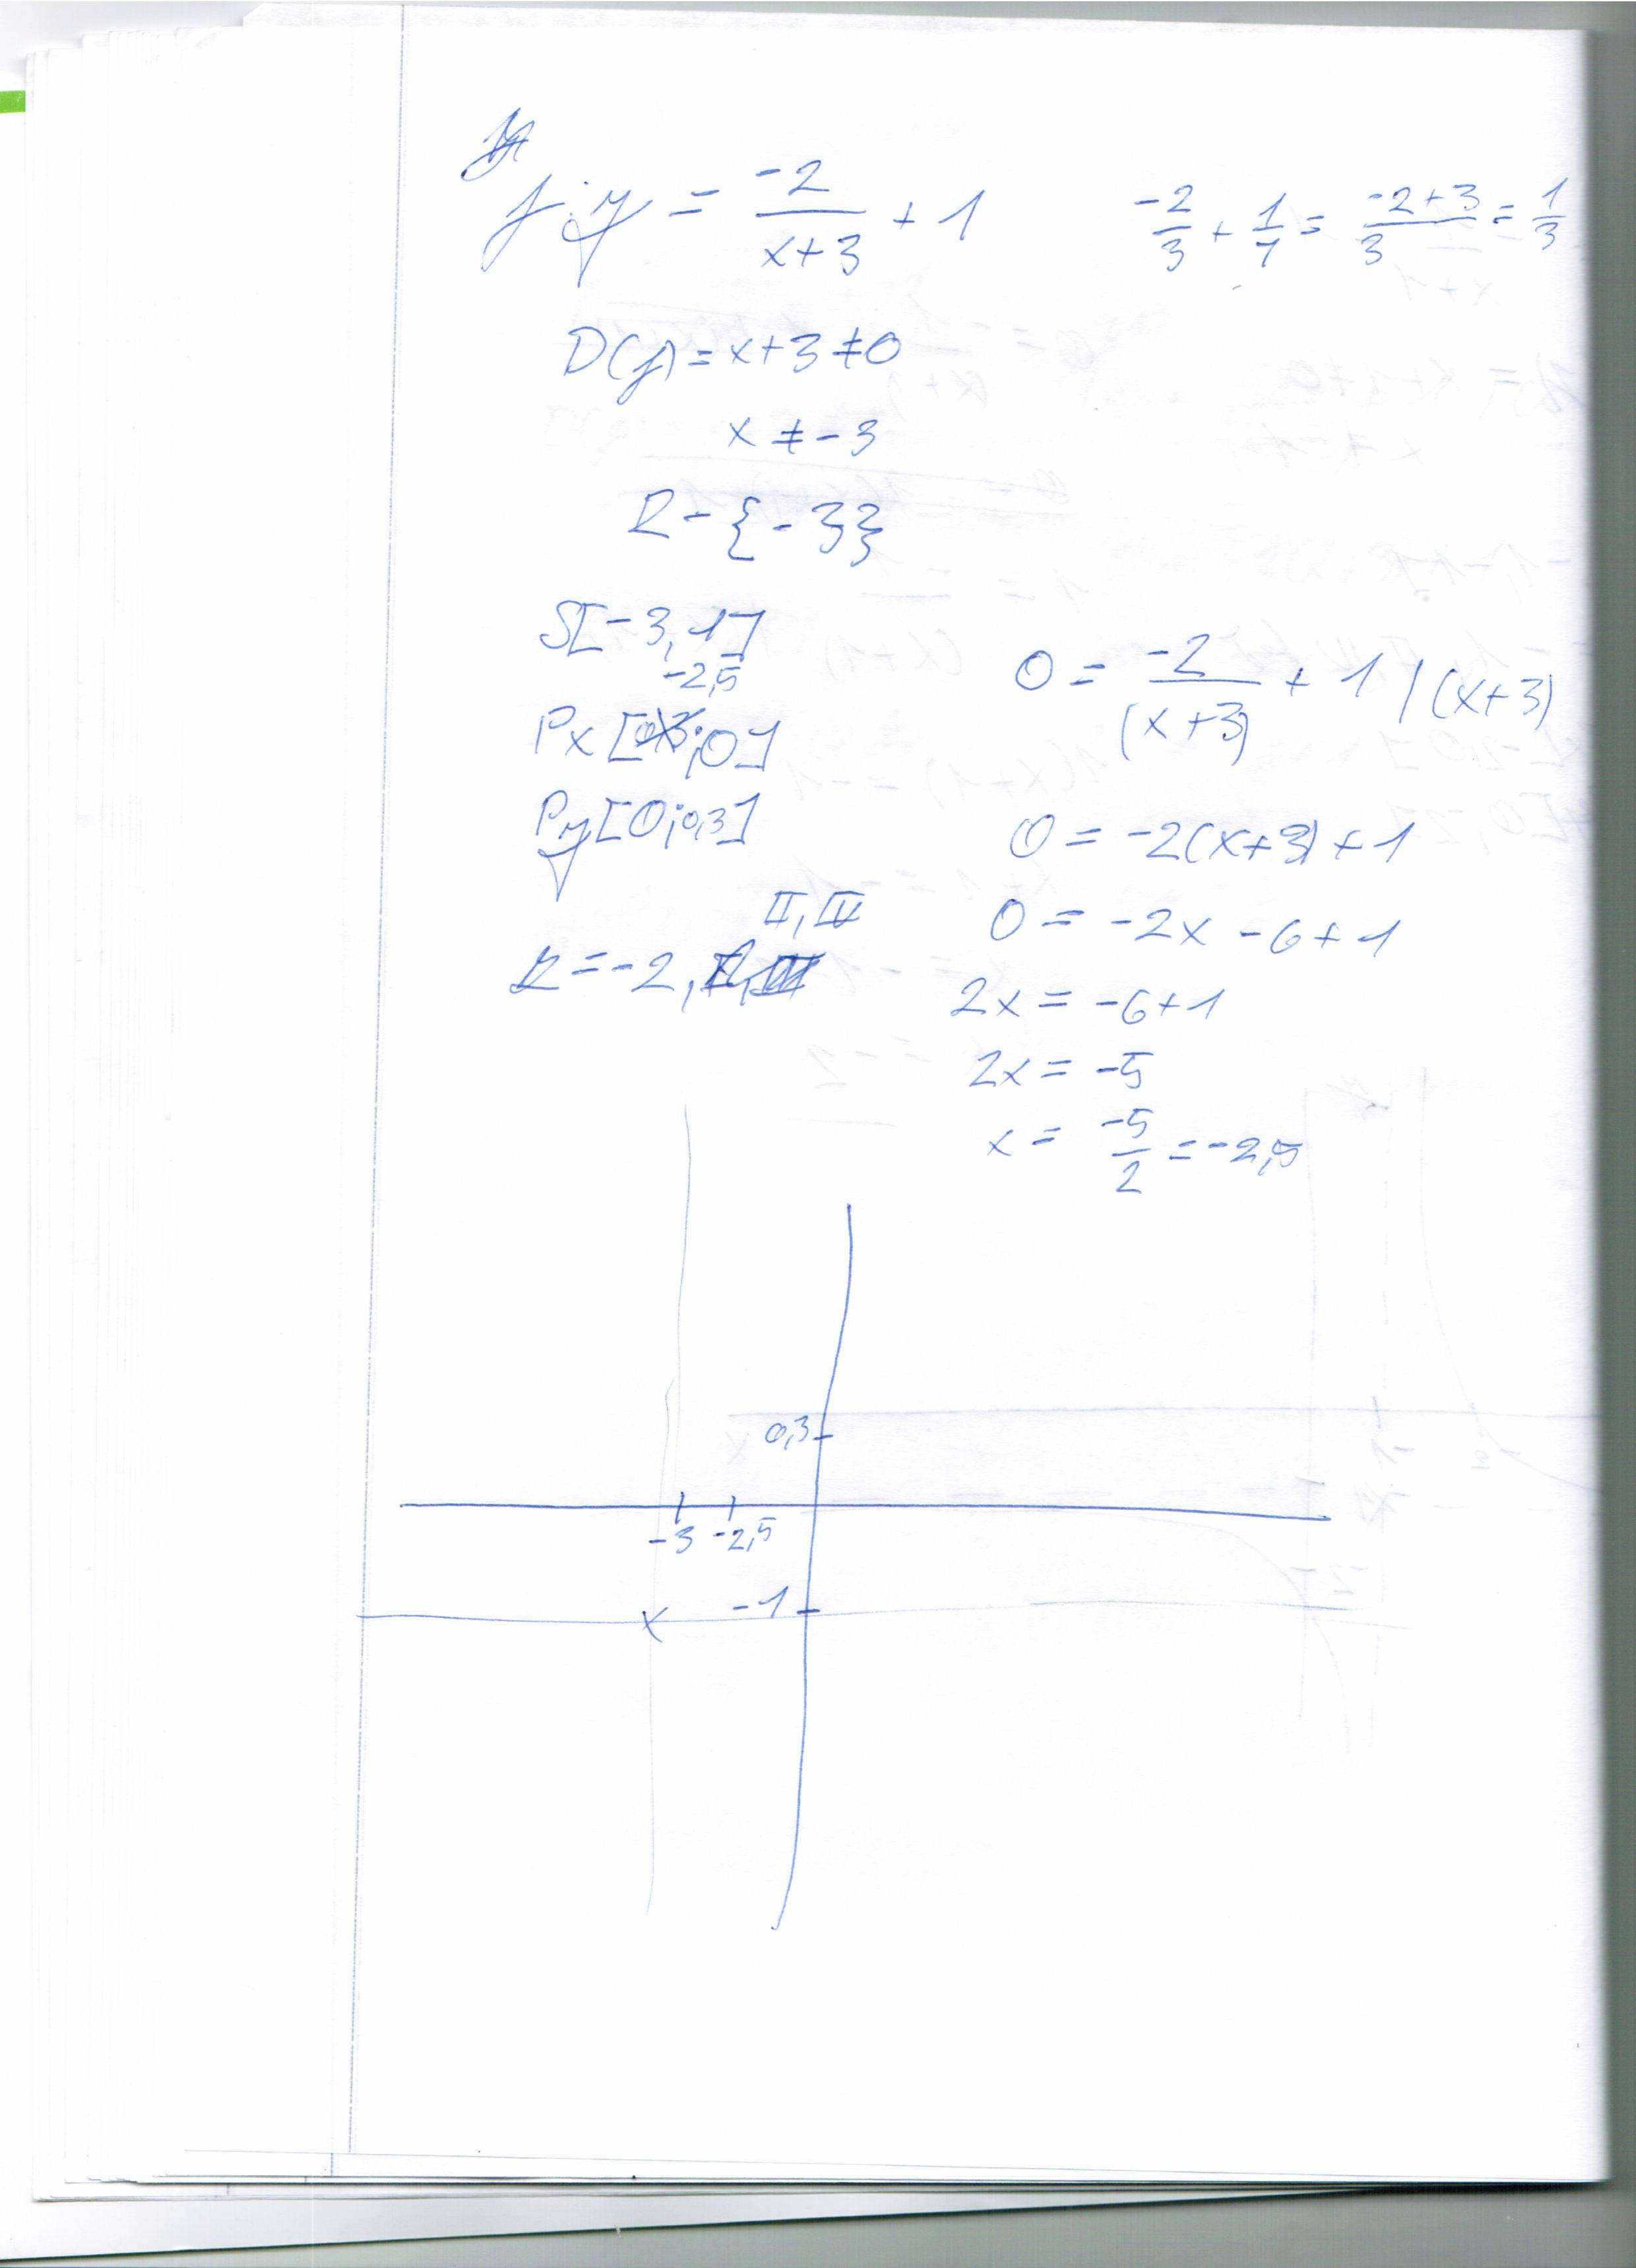 f: y = -2/(x+3) + 1
-2/3 + 1/1 = (-2+3)/3 = 1/3
D(f) = x+3 ≠ 0
x ≠ -3
R - {-3}
S[-3, 1]
-2,5
Px[ ;0]
Py[0;0,3]
II, IV
k = -2,
0 = -2/(x+3) + 1 / (x+3)
0 = -2(x+3) + 1
0 = -2x - 6 + 1
2x = -6+1
2x = -5
x = -5/2 = -2,5
0,3
-3 -2,5
-1
x